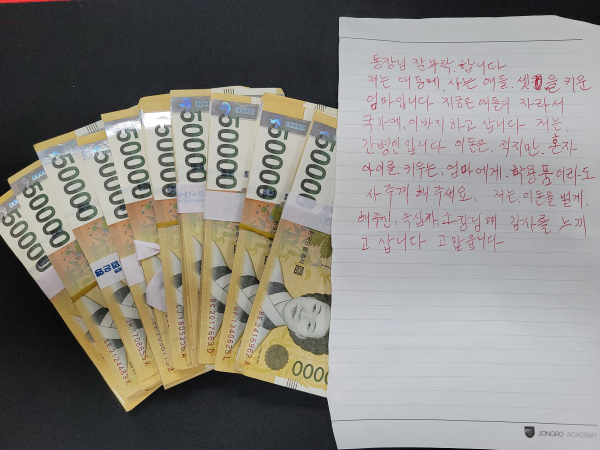 동장님 잘 부탁 합니다
저는 대동에 사는 애들 셋을 키운
엄마입니다 지금은 애들이 자라서
국가에 이바지하고 삽니다 저는
간병인입니다 이돈은 적지만 혼자
아이를 키우는 엄마에게 학용품이라도
사주게 해주세요. 저는 이돈을 벌게
해주신 감사를 느끼
고 삽니다 고맙습니다
JONGRO ACADEMY
50000
50000
50000
50000
50000
50000
50000
50000
50000
50000
BE 2416969 A